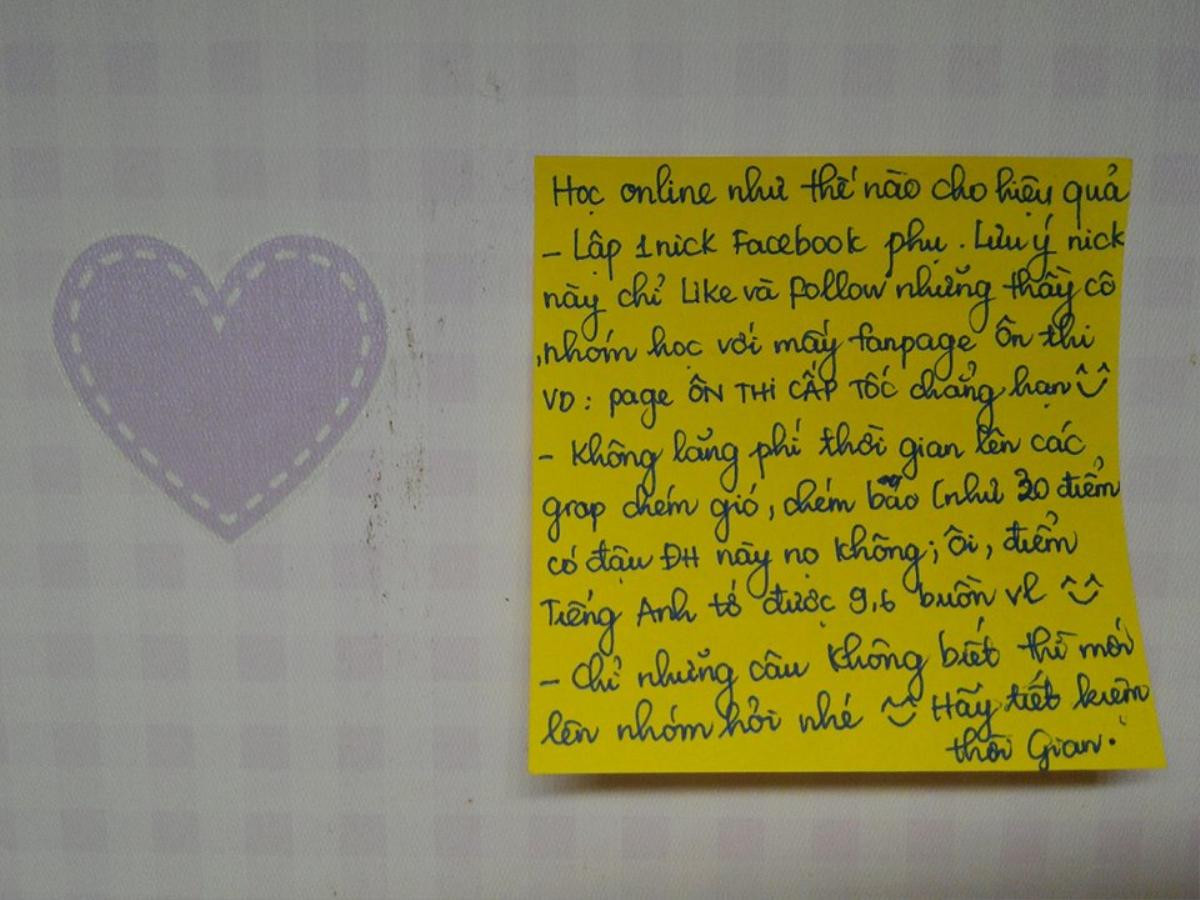 Học online như thế nào cho hiệu quả
- Lập 1 nick Facebook phụ. Lưu ý nick
này chỉ Like và follow những thầy cô
, nhóm học với mấy fanpage ôn thi
VD: page ÔN THI CẤP TỐC chẳng hạn ^^
- Không lãng phí thời gian lên các
grop chém gió, chém bão (như 30 điểm
có đậu ĐH này nọ không; ôi, điểm
Tiếng Anh tớ được 9,6 buồn vl ^^
- Chỉ những câu không biết thì mới
lên nhóm hỏi nhé ^^ Hãy tiết kiệm
thời Gian.